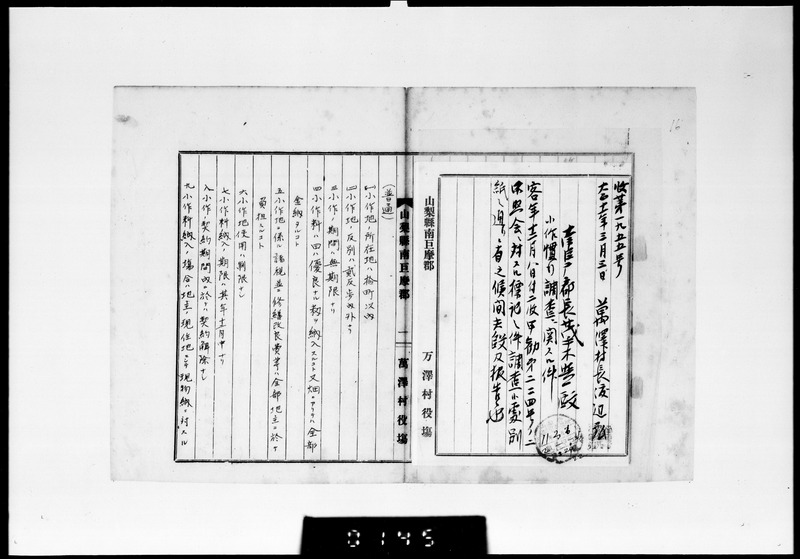 16
収第一九五五号
大正十一年三月三日
萬澤村長渡辺
郡長
小作慣行調査ニ関スル件
客年十二月八日付二収甲勧第二二四号ノ二
ヲ以テ照会相成候標記ノ件調査候処別
紙ノ通リニ有之候間此段及報告候也
11.3.6
山梨縣南巨摩郡
万澤村役場
山梨縣南巨摩郡
一
萬澤村役場
(普通)
一、小作地ノ所在地ハ拾町以内
二、小作地ノ反別ハ貳反歩内外ナリ
三、小作ノ期間ハ無期限ナリ
四、小作料ハ田ハ優良ナル籾ヲ納入スルコト又畑ニアリテハ全部
金納タルコト
五、小作地ニ係ル諸税並ニ修繕改良費等ハ全部地主ニ於テ
負担スルコト
六、小作地使用ハ制限ナシ
七、小作料納入ノ期限ハ其年十二月中ナリ
八、小作ノ契約期間内ニ於テハ契約解除ナシ
九、小作料納入ノ場合ハ地主ノ現住地ニ於テ現物納ニ対スル
0145